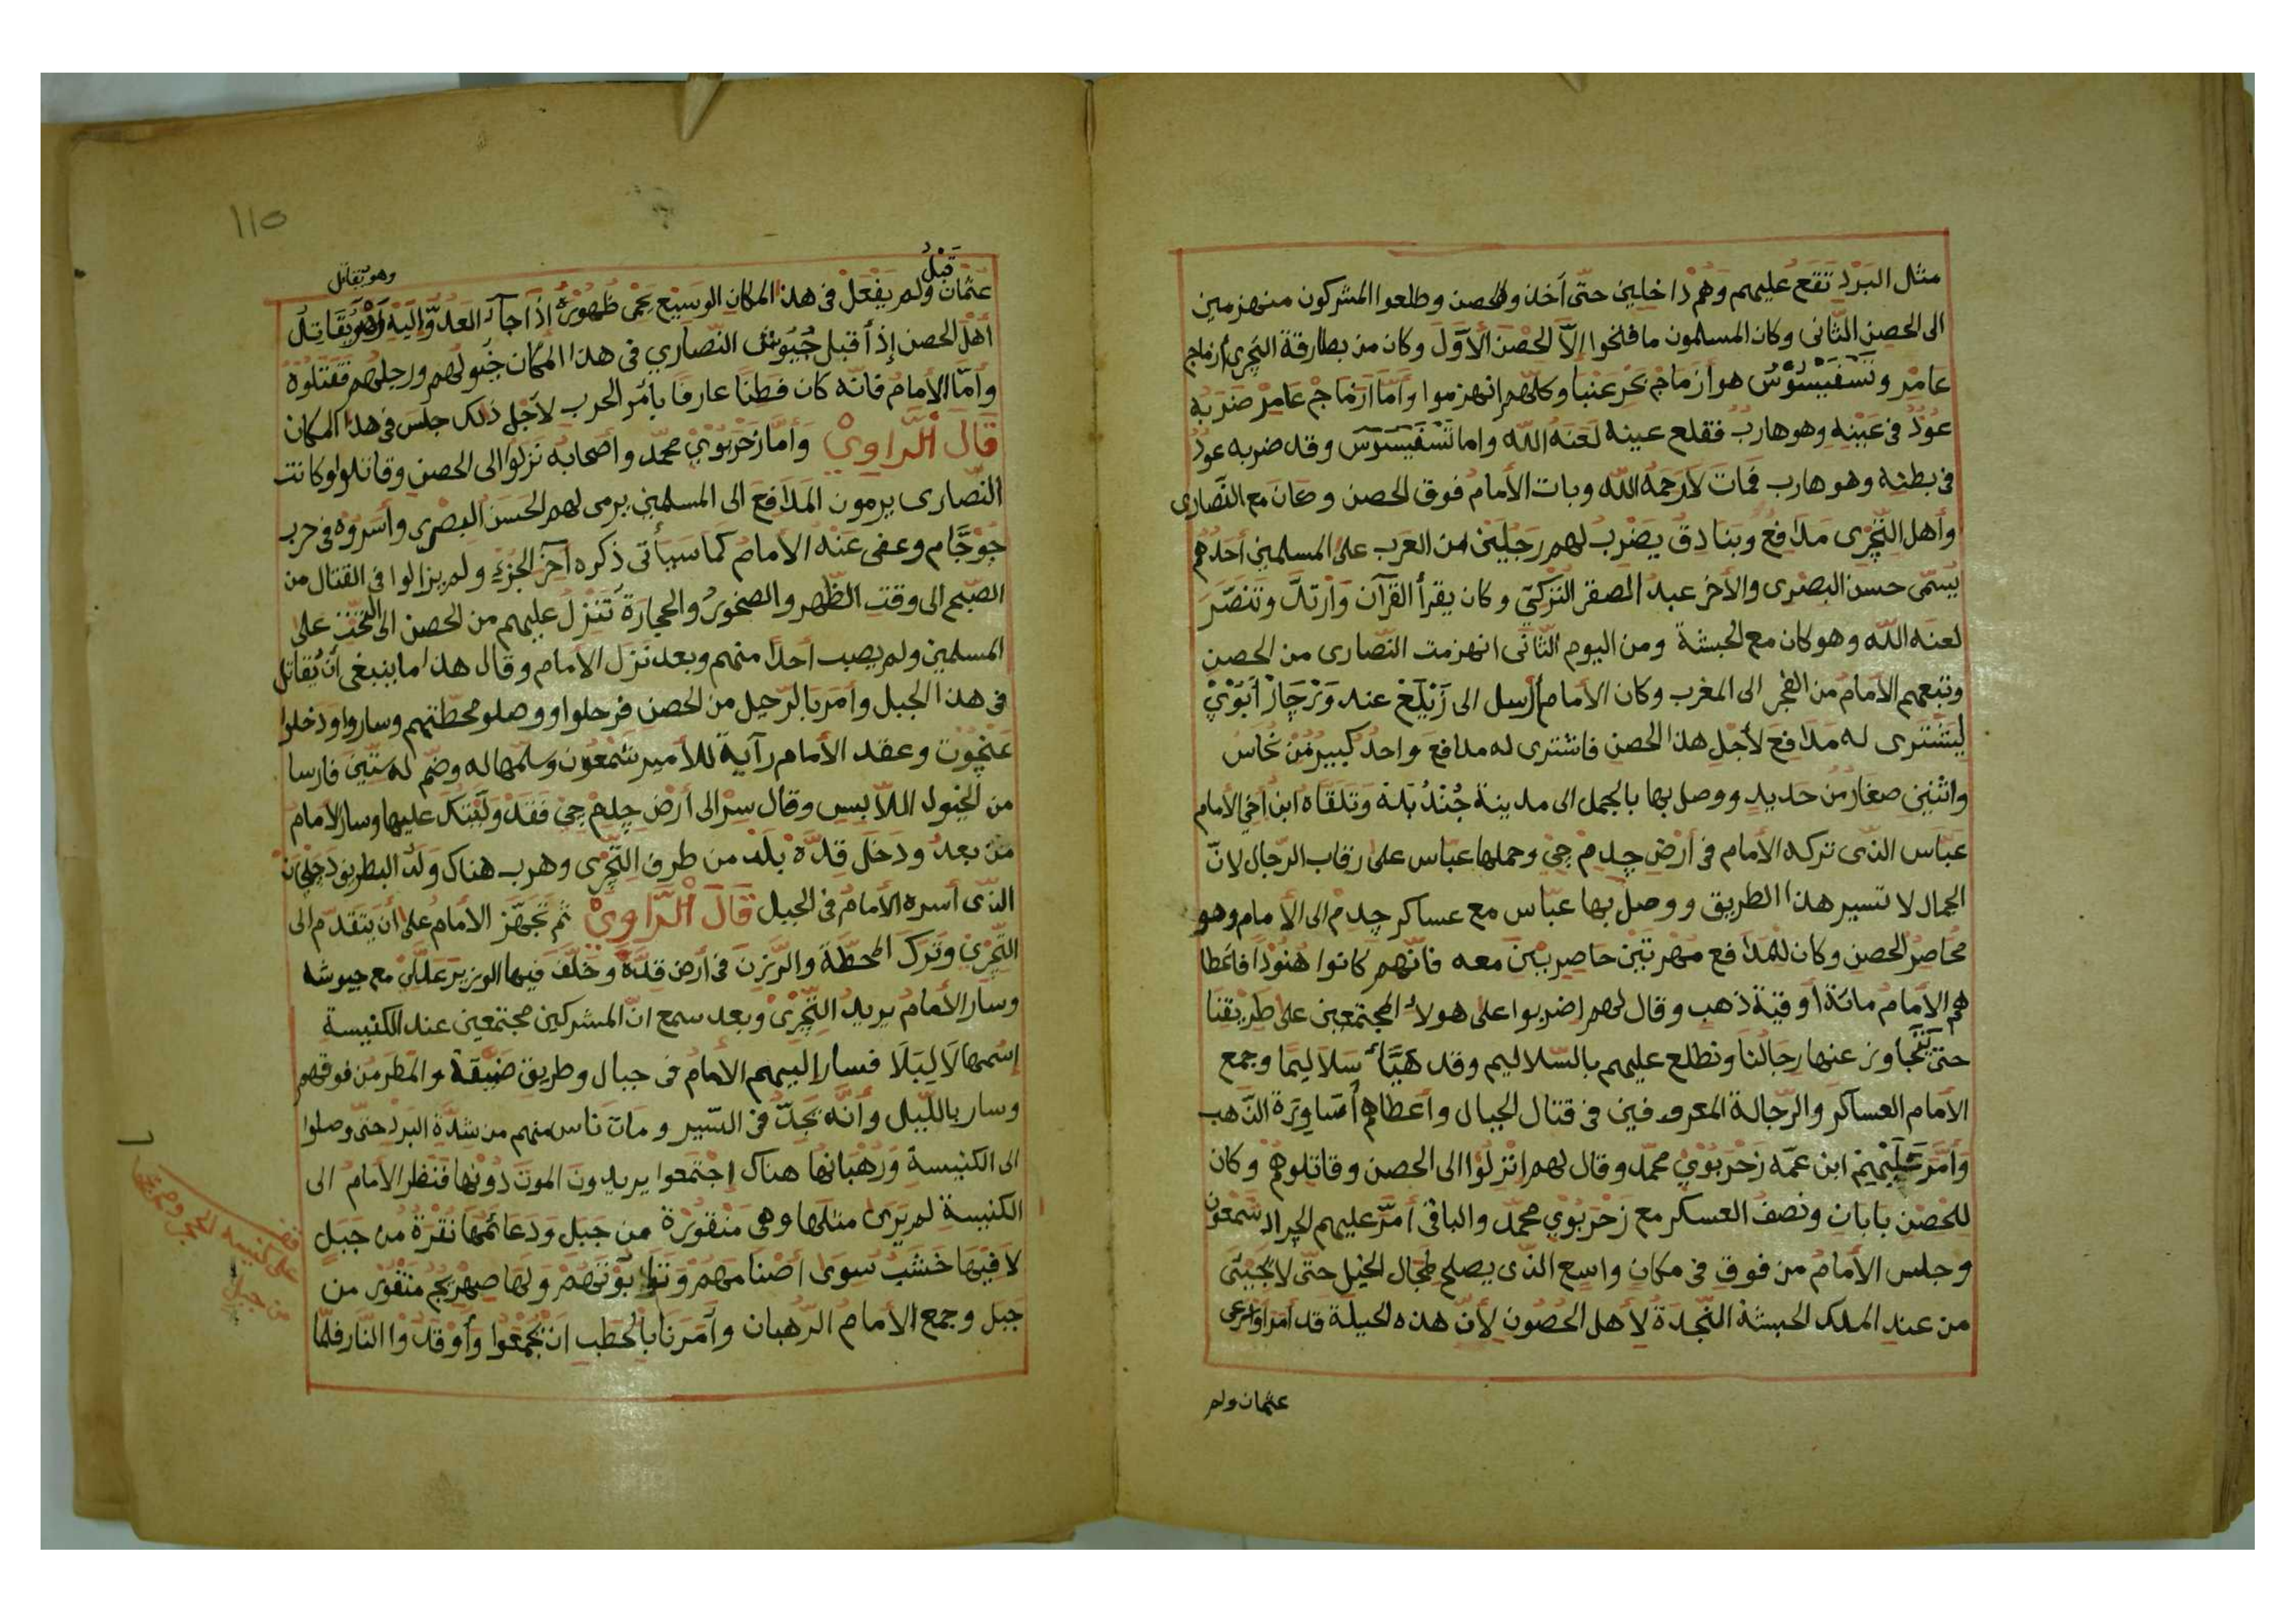 مثل البَرَدِ تَقَع عليهم وَهُم دَاخلين حتّى أخذوا الحصن وطلعوا المشركون منهزمين
الى الحصن الثّانى وكان المسلمون ما فتحوا إلّا الحصن الأوّل وكان من بطارقة التجرى أزماج
عامر وتسفيسوس هو أزماج بحر عنبا وكلّهم انهزموا وأمّا أزماج عامر ضربه
عود فى عينه وهو هارب فقلع عينه لعنه الله واما تسفيسوس وقد ضربه عود
فى بطنه وهو هارب فمات لا رحمه الله وبات الأمام فوق الحصن وكان مع النّصارى
وأهل التّجرى مدافع وبنادق يضرب لهم رجلين من العرب على المسلمين أحدهم
يسمّى حسن البصرى والأخر عبد المصقر التركيّ وكان يقرأ القرآن وارتدّ وتنصّر
لعنه الله وهو كان مع الحبشة ومن اليوم الثّانى انهزمت النّصارى من الحصن
وتبعهم الأمام من الفجر الى المغرب وكان الأمام أرسل الى زيلع عند ورجار أبوي
ليشترى له مدافع لأجل هذا الحصن فاشترى له مدافع واحد كبير من نحاس
واثنين صغار من حديد ووصل بها بالجمل الى مدينة جند بلة وتلقاه ابن أخي الأمام
عبّاس الذّى تركه الأمام فى أرض چدم جي وحملها عباس على رقاب الرّجال لأنّ
الجمال لا تسير هذا الطريق ووصل بها عبّاس مع عساكر چدم الى الأمام وهو
محاصر الحصن وكان للمدافع مهرتين حاضرين معه فانّهم كانوا هنودا فاعطا
هم الأمام مائة أوقية ذهب وقال لهم اضربوا على هولاء المجتمعين على طريقنا
حتى يتجاوز عنها رجالنا ونطلع عليهم بالسّلاليم وقد هيّأ سلاليما وجمع
الأمام العساكر والرّجالة المعروفين فى قتال الجبال وأعطاهم أساورة الذّهب
وأمّر عليهم ابن عمّه زحربوي محمّد وقال لهم انزلوا الى الحصن وقاتلوهم وكان
للحصن بابان ونصف العسكر مع زحربوي محمّد والباقى أمّر عليهم الجراد شمعون
وجلس الأمام من فوق فى مكان واسع الذّى يصلح لمجال الخيل حتّى لا تجيئ
من عند الملك الحبشة النّجدة لأهل الحصون لأنّ هذه الحيلة قد أمر اورعى
عثمان ولم
١١٥
قبل
وهو يقاتل
عثمان ولم يفعل فى هذا المكان الوسيع يحمى ظهوره إذا جاء العدوّ إليه وهو يقاتل
أهل الحصن إذ أقبل جيوش النّصاري فى هذا المكان خيولهم ورجلهم فقتلوه
وأمّا الأمام فانّه كان فطنا عارفا بأمر الحرب لأجل ذلك جلس فى هذا المكان
قال الراوي وأمّا زحربوي محمّد وأصحابه نزلوا الى الحصن وقاتلوا وكانت
النّصارى يرمون المدافع الى المسلمين يرمى لهم الحسن البصري وأسروه فى حرب
جوجّام وعفى عنه الأمام كما سيأتى ذكره آخر الجزء ولم يزالوا فى القتال من
الصّبح الى وقت الظّهر والصخور والحجارة تنزل عليهم من الحصن الى التّحت على
المسلمين ولم يصب أحدا منهم وبعد نزل الأمام وقال هذا ما ينبغى أن يقاتل
فى هذا الجبل وأمر بالرّحيل من الحصن فرحلوا ووصلو محطّتهم وساروا ودخلوا
عنچوت وعقد الأمام رآية للأمير شمعون وسلّمها له وضم له ستّين فارسا
من الخيول الملّابس وقال سر الى أرض چلم جي فقد وليتك عليها وسار الأمام
من بعد ودخل قدّة بلد من طرف التّجرى وهرب هناك ولد البطريق دجلجان
الذّى أسره الأمام فى الجبل قال الرّاوي ثم تجهّز الأمام على أن يتقدّم الى
التّجري وترك المحطّة والرّزن فى أرض قدّة وخلّف فيها الوزير عدلي مع جيوشه
وسار الأمام يريد التّجرى وبعد سمع انّ المشركين مجتمعين عند الكنيسة
إسمها لاليبلا فسار إليهم الأمام فى جبال وطريق ضيّقة والمطر من فوقهم
وسار بالليل وأنّه يجدّ فى السّير ومات ناس منهم من شدّة البرد حتّى وصلوا
الى الكنيسة ورهبانها هناك اجتمعوا يريدون الموت دونها فنظر الأمام الى
الكنيسة لم يرى مثلها وهى منقورة من جبل ودعائمها نقرة من جبل
لا فيها خشب سوى أصنامهم وتوابوتهم ولها صهريج منقور من
جبل وجمع الأمام الرّهبان وأمرنا بالحطب ان يجمعوا وأوقدوا النّار فلمّا